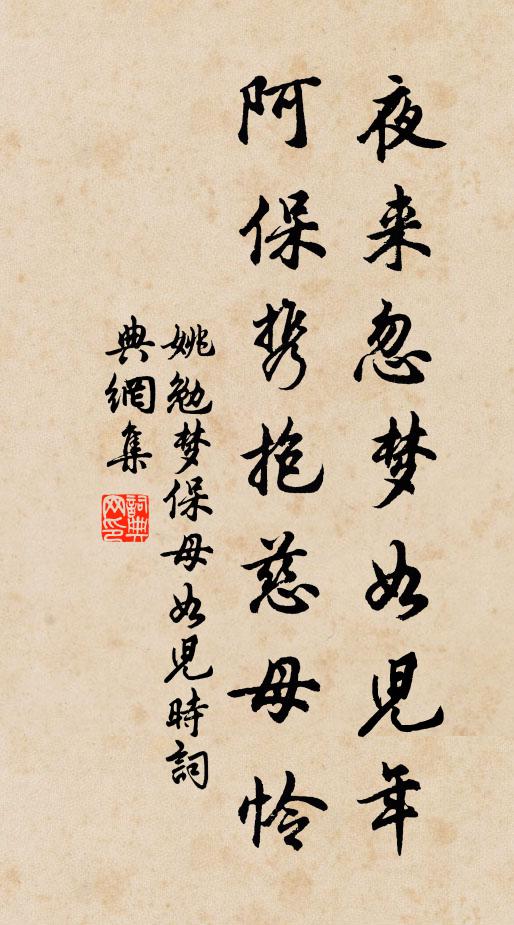 夜来忽梦如児年
阿保携抱慈母怜
姚勉梦保母如児時詞
典網集
詞典网印